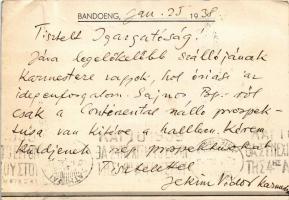 BANDOENG, Jan. 25 1938.
Tisztelt Igazgatóság!
Jáva legelőkelőbb szállójának
karmestere vagyok, hol óriási az
idegenforgalom. Sajnos Bp.-ről
csak a Continental szálló prospek-
tusa van kitéve a hallban. Kérem
küldjenek szép prospektusokat
Tisztelettel
Viktor